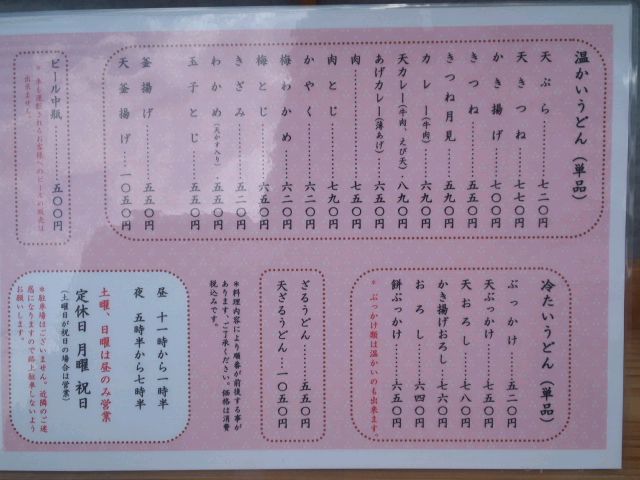 温かいうどん（単品）
天ぷら………七二〇円
天きつね……七七〇円
かき揚げ……七〇〇円
きつね………五五〇円
きつね月見…五九〇円
カレー（牛肉）…六九〇円
天カレー（牛肉 えび天）…八九〇円
あげカレー（薄あげ）…六五〇円
肉……………五五〇円
肉とじ………七九〇円
かやく………六二〇円
梅わかめ……六二〇円
梅とじ………六五〇円
きざみ………五二〇円
わかめ（天かす入り）…五五〇円
玉子とじ……五五〇円
釜揚げ………五五〇円
天釜揚げ…一〇五〇円
ビール中瓶………五〇〇円
＊車を運転されるお客様へのビールの販売は
出来ません。
冷たいうどん（単品）
ぶっかけ……五二〇円
天ぶっかけ…七五〇円
天おろし……七八〇円
かき揚げおろし…七六〇円
おろし………六四〇円
餅ぶっかけ…六五〇円
＊ぶっかけ類は温かいのも出来ます。
ざるうどん……五五〇円
天ざるうどん…一〇五〇円
＊料理内容により順番が前後する事が
あります、ご了承ください。価格は消費
税込みです。
昼 十一時から一時半
夜 五時半から七時半
土曜、日曜は昼のみ営業
定休日 月曜 祝日
（土曜日が祝日の場合は営業）
＊駐車場はございません。近隣のご迷
惑になりますので路上駐車しないよう
お願いします。